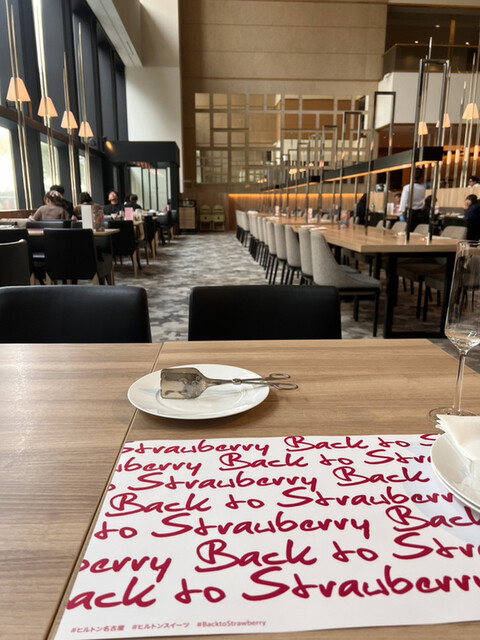 Strawberry Back to S
berry Back to Str
Strawberry Back
Back to Strawberry
to Strawberry Back
erry Back to Stra
ack to Strawberry
#ヒルトン名古屋 #ヒルトンスイーツ #BacktoStrawberry